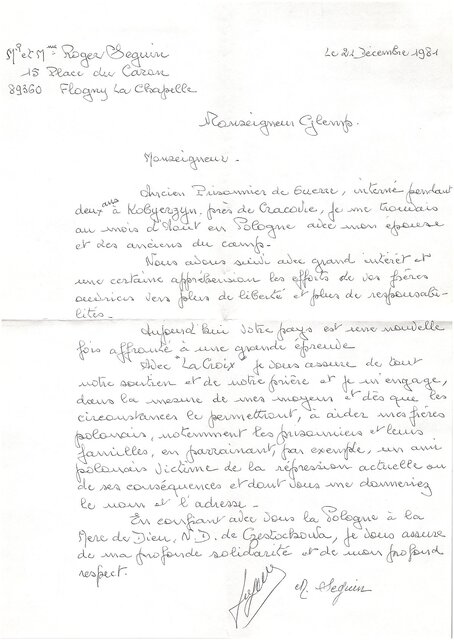 Mr et Mme Roger Seguin
15 Place du Caron
89360 Flogny La Chapelle
Le 21 Décembre 1981
Monseigneur Glemp.
Monseigneur.
Ancien Prisonnier de Guerre, interné pendant
deux ans à Kobyerzyn, près de Cracovie, je me trouvais
au mois d'Août en Pologne avec mon épouse
et des anciens du camp.
Nous avons suivi avec grand intérêt et
une certaine appréhension les efforts de vos frères
ouvriers vers plus de liberté et plus de responsabi-
lités.
Aujourd'hui votre pays est une nouvelle
fois affronté à une grande épreuve
Avec "La Croix" je vous assure de tout
notre soutien et de notre prière et je m'engage,
dans la mesure de mes moyens et dès que les
circonstances le permettront, à aider mes frères
polonais, notemment les prisonniers et leurs
familles, en parrainant, par exemple, un ami
polonais victime de la répression actuelle ou
de ses conséquences et dont vous me donneriez
le nom et l'adresse.
En confiant avec vous la Pologne à la
Mère de Dieu, N.D. de Czestschowa, je vous assure
de ma profonde solidarité et de mon profond
respect.
Seguin